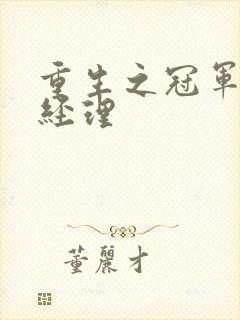 重生之冠軍
經理
董麗才